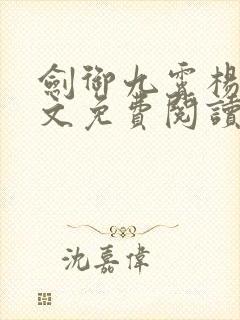 劍御九霄楊
文免費閱讀
沈嘉偉